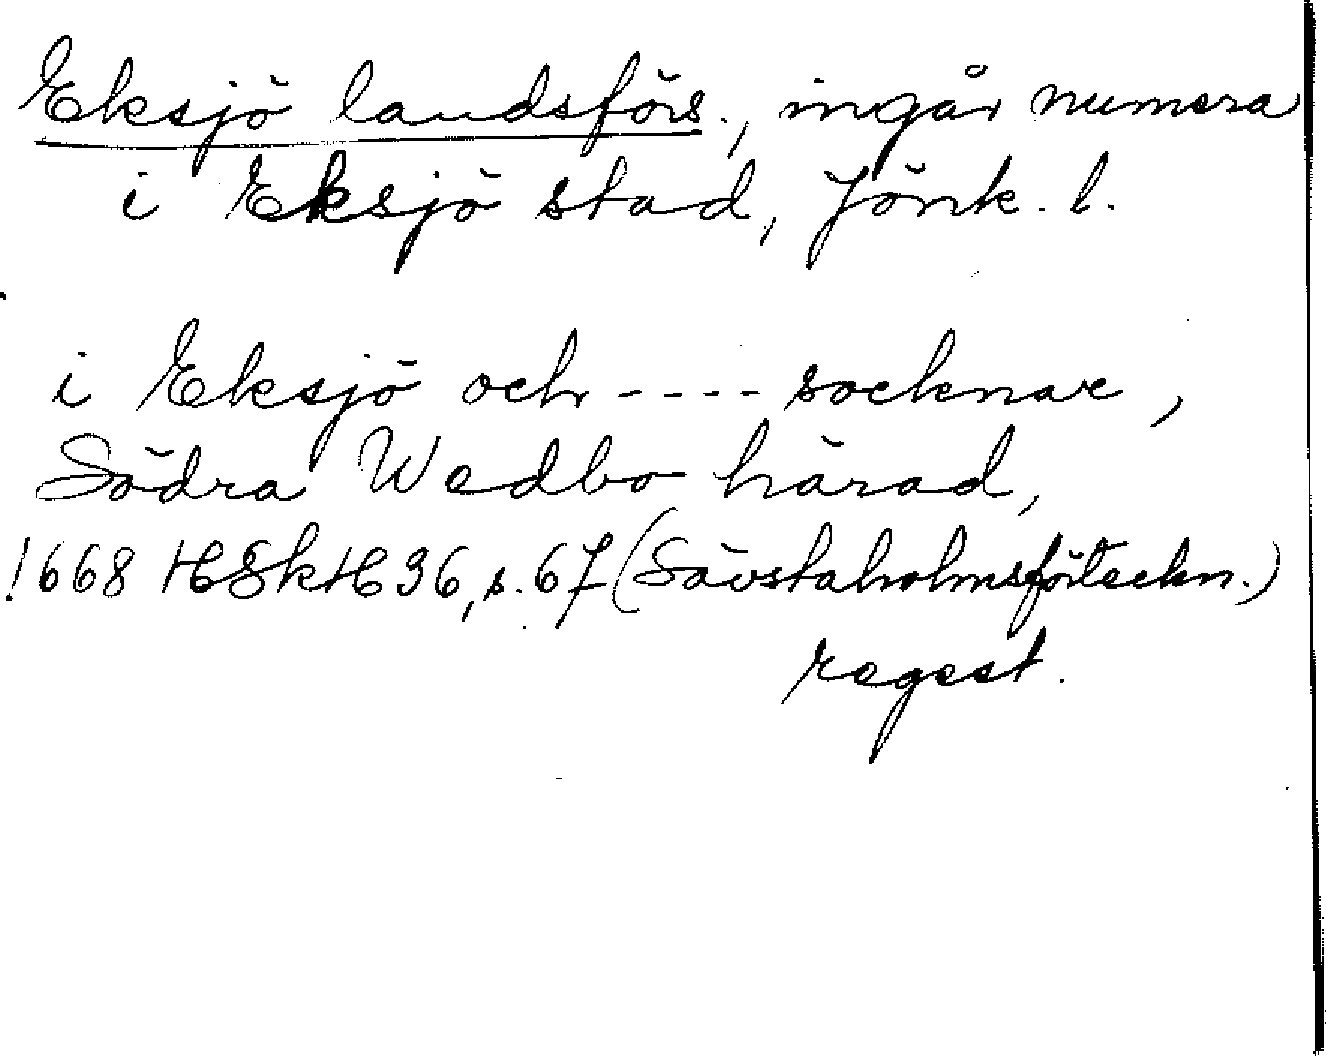 Eksjö landsförs., ingår numera
i Eksjö stad, Jönk. l.
i Eksjö och ---- socknar,
Södra Wedbo härad,
1668 HSkH 36, s. 67 (Sävstaholmsförteckn.)
regest.